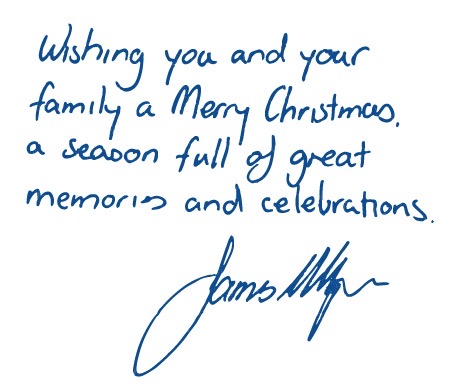 Wishing you and your
family a Merry Christmas,
a season full of great
memories and celebrations.
James